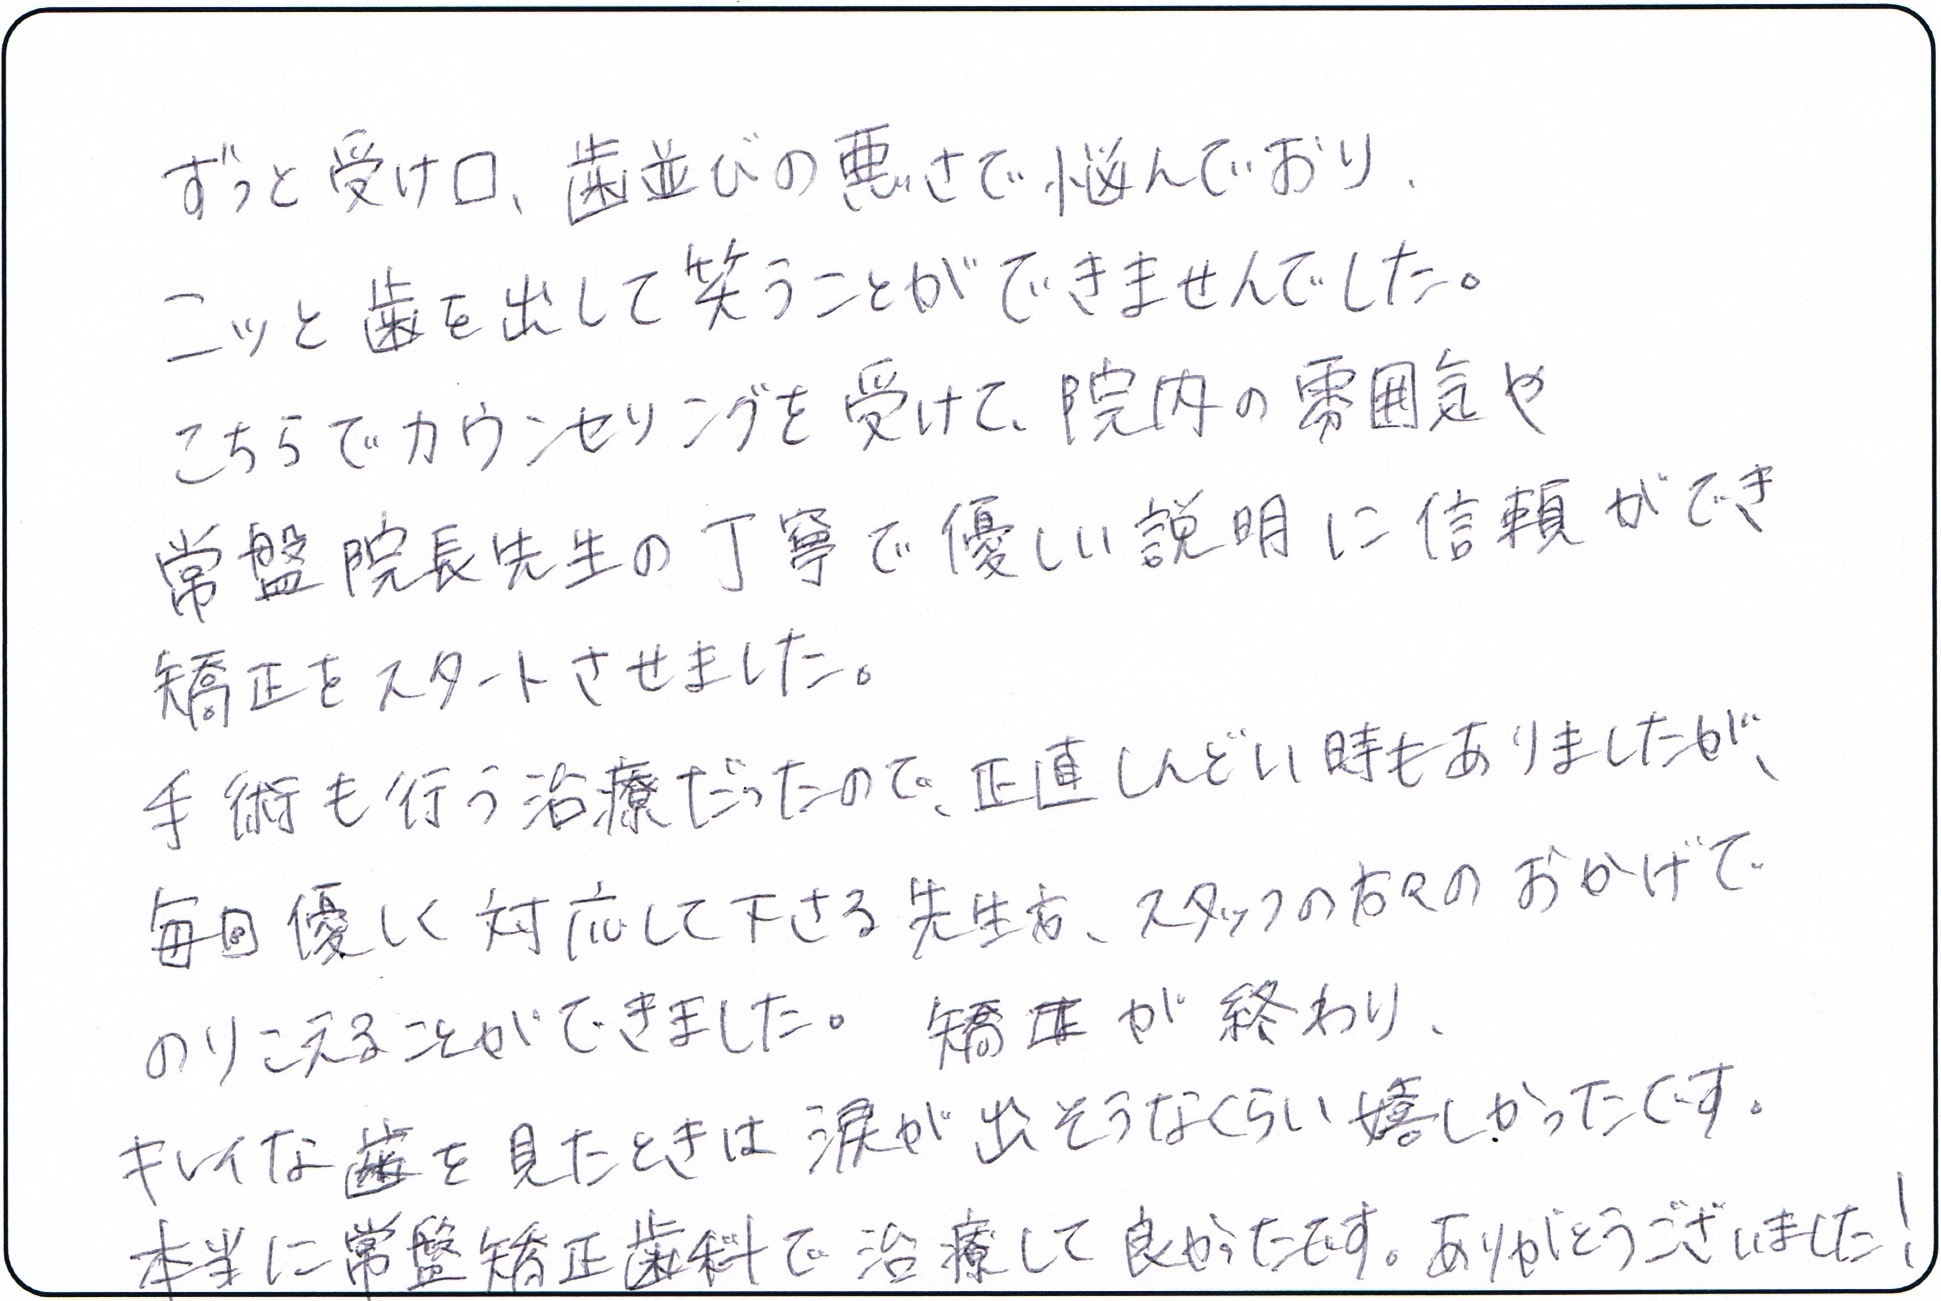 ずっと受け口、歯並びの悪さで悩んでおり、
ニッと歯を出して笑うことができませんでした。
こちらでカウンセリングを受けて、院内の雰囲気や
常盤院長先生の丁寧で優しい説明に信頼ができ
矯正をスタートさせました。
手術も行う治療だったので、正直しんどい時もありましたが、
毎回優しく対応して下さる先生方、スタッフの方々のおかげで
のりこえることができました。 矯正が終わり、
キレイな歯を見たときは涙が出そうなくらい嬉しかったです。
本当に常盤矯正歯科で治療して良かったです。ありがとうございました!